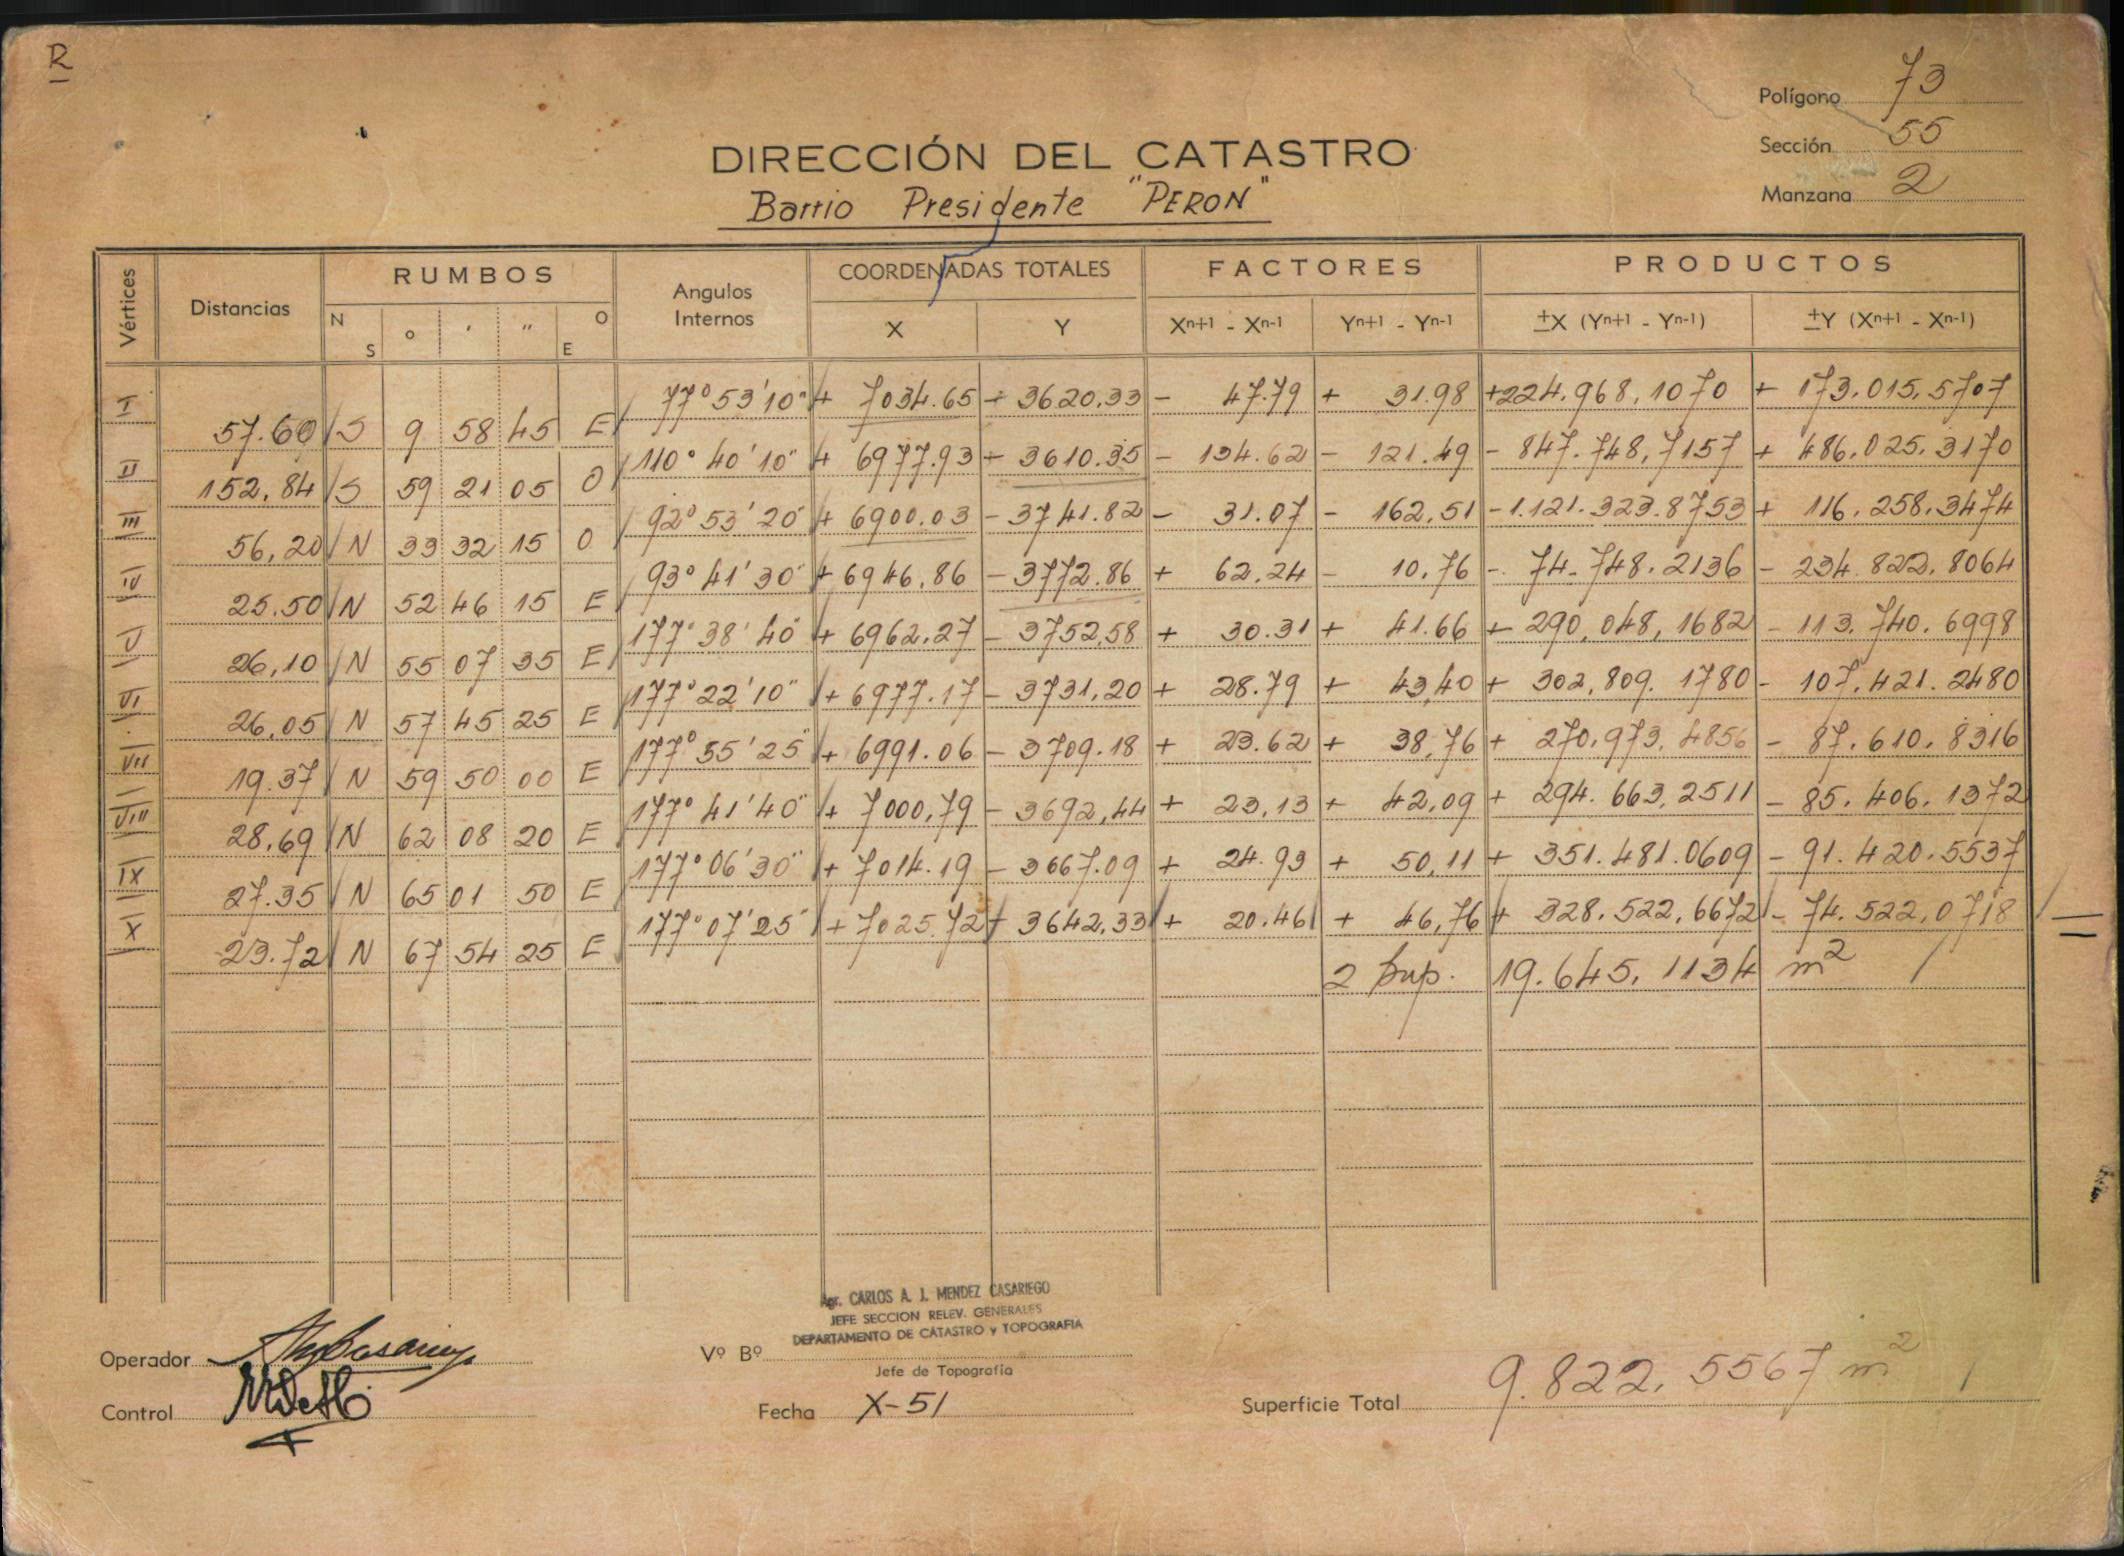 R
Polígono 73
Sección 55
Manzana 2
DIRECCIÓN DEL CATASTRO
Barrio Presidente "PERON"
Vértices Distancias RUMBOS Angulos Internos COORDENADAS TOTALES FACTORES PRODUCTOS
N S ° ' " O E X Y Xn+1 - Xn-1 Yn+1 - Yn-1 ±X (Yn+1 - Yn-1) ±Y (Xn+1 - Xn-1)
I 77° 53' 10" + 7034.65 - 3620.33 - 47.79 + 31.98 +224.968,1070 + 173.015,5707
57.60 S 9 58 45 E
II 110° 40' 10" + 6977.93 - 3610.35 - 134.62 - 121.49 - 847.748,7157 + 486.025.3170
152,84 S 59 21 05 O
III 92° 53' 20" + 6900.03 - 3741.82 - 31.07 - 162,51 -1.121.323.8753 + 116.258.3474
56,20 N 33 32 15 O
IV 93° 41' 30" + 6946,86 - 3772.86 + 62.24 - 10,76 - 74.748.2136 - 234.822.8064
25.50 N 52 46 15 E
V 177° 38' 40" + 6962.27 - 3752,58 + 30.31 + 41.66 + 290,048,1682 - 113.740.6998
26,10 N 55 07 35 E
VI 177° 22' 10" + 6977.17 - 3731,20 + 28.79 + 43,40 + 302,809.1780 - 107.421.2480
26,05 N 57 45 25 E
VII 177° 55' 25" + 6991.06 - 3709.18 + 23.62 + 38,76 + 270.973.4856 - 87.610.8316
19.37 N 59 50 00 E
VIII 177° 41' 40" + 7000,79 - 3692,44 + 23,13 + 42,09 + 294.663,2511 - 85.406.1372
28,69 N 62 08 20 E
IX 177° 06' 30" + 7014.19 - 3667.09 + 24.93 + 50,11 + 351.481.0609 - 91.420.5537
27.35 N 65 01 50 E
X 177° 07' 25" + 7025.72 - 3642,33 + 20.46 + 46,76 + 328.522,6672 - 74.522,0718
23.72 N 67 54 25 E
2 Sup. 19.645,1134 m²
Agr. CARLOS A. J. MENDEZ CASARIEGO
JEFE SECCION RELEV. GENERALES
DEPARTAMENTO DE CATASTRO y TOPOGRAFIA
Operador
Vº Bº
Jefe de Topografía
Control
Fecha X-51
Superficie Total 9.822,5567 m²